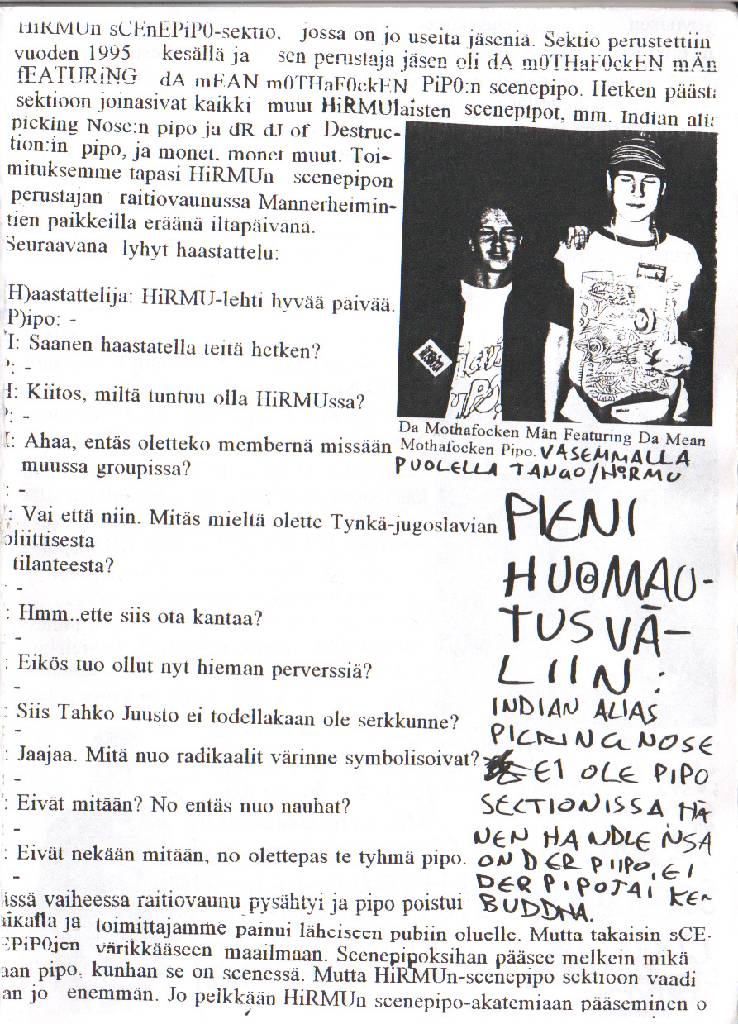 HiRMUn sCEnEPiP0-sektio, jossa on jo useita jäseniä. Sektio perustettiin
vuoden 1995 kesällä ja sen perustaja jäsen oli dA m0THaF0ckEN mÄn
fEATURiNG dA mEAN m0THaF0ckEN PiP0:n scenepipo. Hetken päästä
sektioon joinasivat kaikki muut HiRMUlaisten scenepipot, mm. Indian ali
picking Nose:n pipo ja dR dJ of Destruc-
tion:in pipo, ja monet, monet muut. Toi-
mituksemme tapasi HiRMUn scenepipon
perustajan raitiovaunussa Mannerheimin-
tien paikkeilla eräänä iltapäivänä.
Seuraavana lyhyt haastattelu:
H)aastattelija: HiRMU-lehti hyvää päivää.
P)ipo: -
I: Saanen haastatella teitä hetken?
: -
I: Kiitos, miltä tuntuu olla HiRMUssa?
: -
I: Ahaa, entäs oletteko membernä missään
muussa groupissa?
: -
: Vai että niin. Mitäs mieltä olette Tynkä-jugoslavian
oliittisesta
tilanteesta?
-
: Hmm..ette siis ota kantaa?
-
: Eikös tuo ollut nyt hieman perverssiä?
-
: Siis Tahko Juusto ei todellakaan ole serkkunne?
-
: Jaajaa. Mitä nuo radikaalit värinne symbolisoivat?
-
: Eivät mitään? No entäs nuo nauhat?
-
: Eivät nekään mitään, no olettepas te tyhmä pipo.
-
issä vaiheessa raitiovaunu pysähtyi ja pipo poistui
aikalla ja toimittajamme painui läheiseen pubiin oluelle. Mutta takaisin sCE-
EPiP0jen värikkääseen maailmaan. Scenepipoksihan pääsee melkein mikä
aan pipo, kunhan se on scenessä. Mutta HiRMUn-scenepipo sektioon vaadi
an jo enemmän. Jo pelkkään HiRMUn scenepipo-akatemiaan pääseminen o
Da Mothafocken Män Featuring Da Mean
Mothafocken Pipo. VASEMMALLA
PUOLELLA TANGO/HiRMU
PIENI
HUOMAU-
TUS VÄ-
LIIN:
INDIAN ALIAS
PICKING NOSE
EI OLE PIPO
SECTIONISSA. HÄ
NEN HANDLENSA
ON DER PIIPO, EI
DER PIPO TAI KE
BUDDHA.